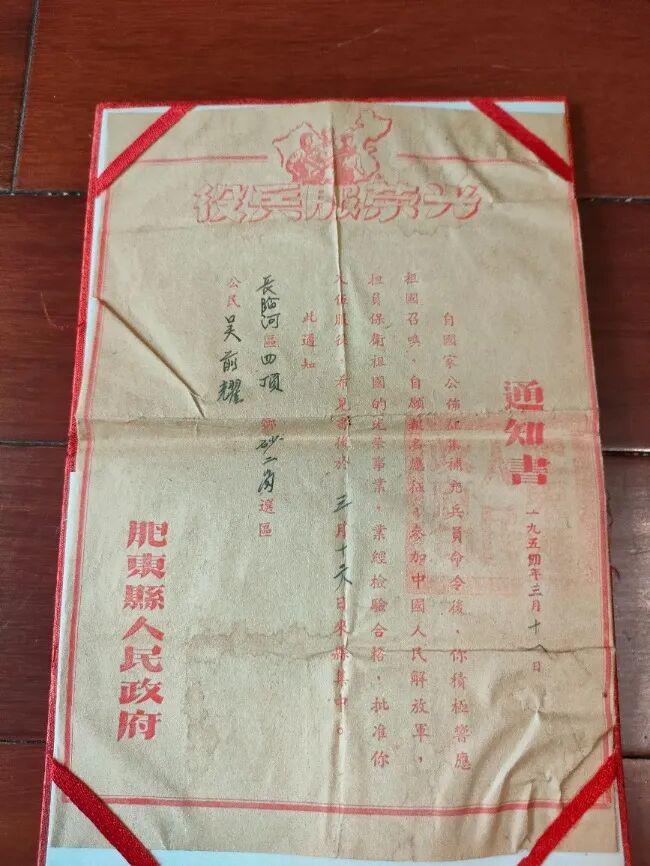 光荣服兵役
通知書
一九五四年三月十日
自國家公佈征集補充兵員命令後，你積極響應
祖國召喚，自願報名應征，參加中國人民解放軍，
担負保衛祖國的光荣事業，業經檢驗合格，批准你
入伍服役，希見書後於三月十六日來縣集中。
此通知
長臨河區四頂鄉砂二崗選區
公民吴前耀
肥東縣人民政府